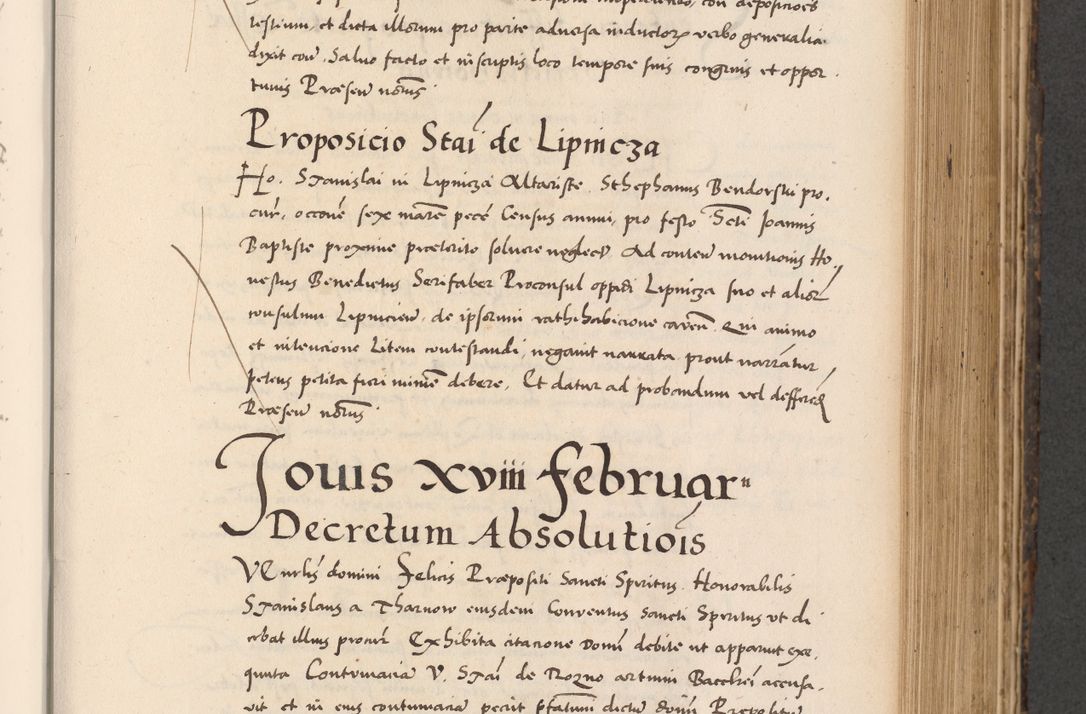 testium, et dicta illorum pro parte adversa inductorꝝ verbo generalia
dixit con̄. Salvo facto et in scriptis loco tempore suis congruis et oppor
tunis Præsen̄ no͞tis
Proposicio Stai̅ de Lipnicza
Ho. Stanislai in Lipnicza Altariste. Sthephanus Bendorski pro,
cur̄, occōne sexe marc̄ pecc̄ Census annui, pro festo Sc̄ti Joannis
Baptiste proxime præterito solvere neglect̄ Ad conten̄ monitionis Ho,
nestus Benedictus Serifaber Proconsul oppidi Lipnicza suo et alior̄
consulum Lipnicien̄, de ipsorum rathihabicione caven̄. Qui animo
et intencione Litem contestandi, negavit narrata prout narrātur
petens petita fieri minime debere, Et datur ad probandum vel defferen̄
Præsen̄ no͞tis
Jovis XViii februar"
Decretum Absolutiois̄
domini Felicis Præpositi Sancti Spiritus. Honorabilis
Stanislaus a Tharnow eiusdem Conventus Sancti Spiritus ut di
cebat illius procur̄ Exhibita citacione Domī debite ut apparuit exe,
quuta Contumacia V. Stai̅ de Rozno artium Baccrei̅ accusa,
vit et in eius contumacia petiit p̄fatum dictu̅ domī Prepositu̅